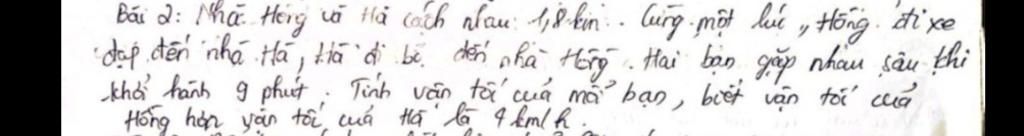 Bài 2: Nhà Hồng và Hà cách nhau 1,8 km. Cùng một lúc, Hồng đi xe
đạp đến nhà Hà, Hà đi bộ đến nhà Hồng. Hai bạn gặp nhau sau khi
khởi hành 9 phút. Tính vận tốc của mỗi bạn, biết vận tốc của
Hồng hơn vận tốc của Hà là 4 km/h.